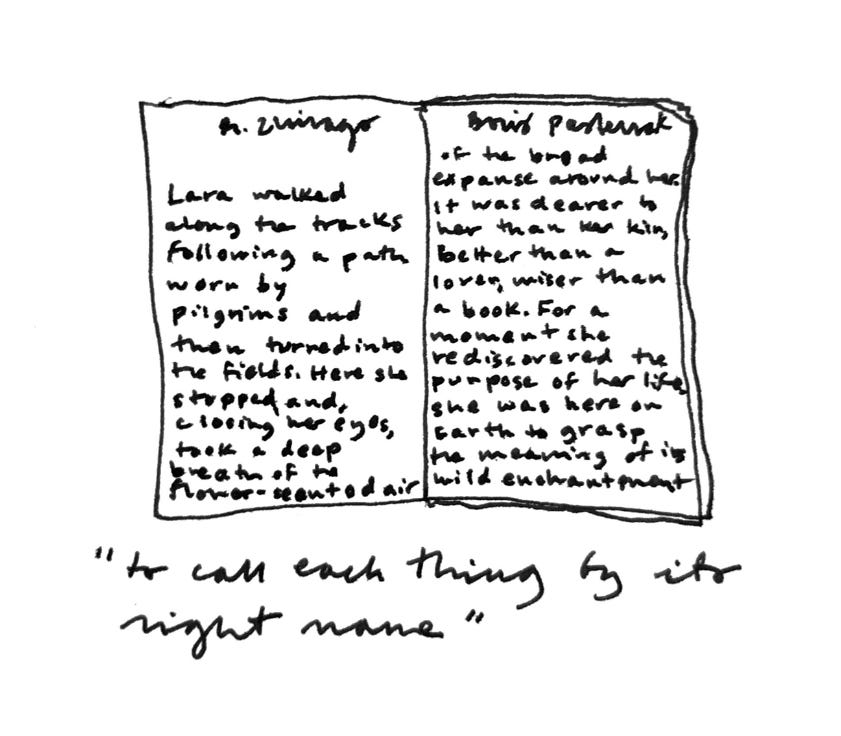 Dr. Zhivago
Lara walked
along the tracks
following a path
worn by
pilgrims and
then turned into
the fields. Here she
stopped and,
closing her eyes,
took a deep
breath of the
flower-scented air
Boris Pasternak
of the broad
expanse around her.
it was dearer to
her than her kin,
better than a
lover, wiser than
a book. For a
moment she
rediscovered the
purpose of her life,
she was here on
Earth to grasp
the meaning of its
wild enchantment
"to call each thing by its
right name"